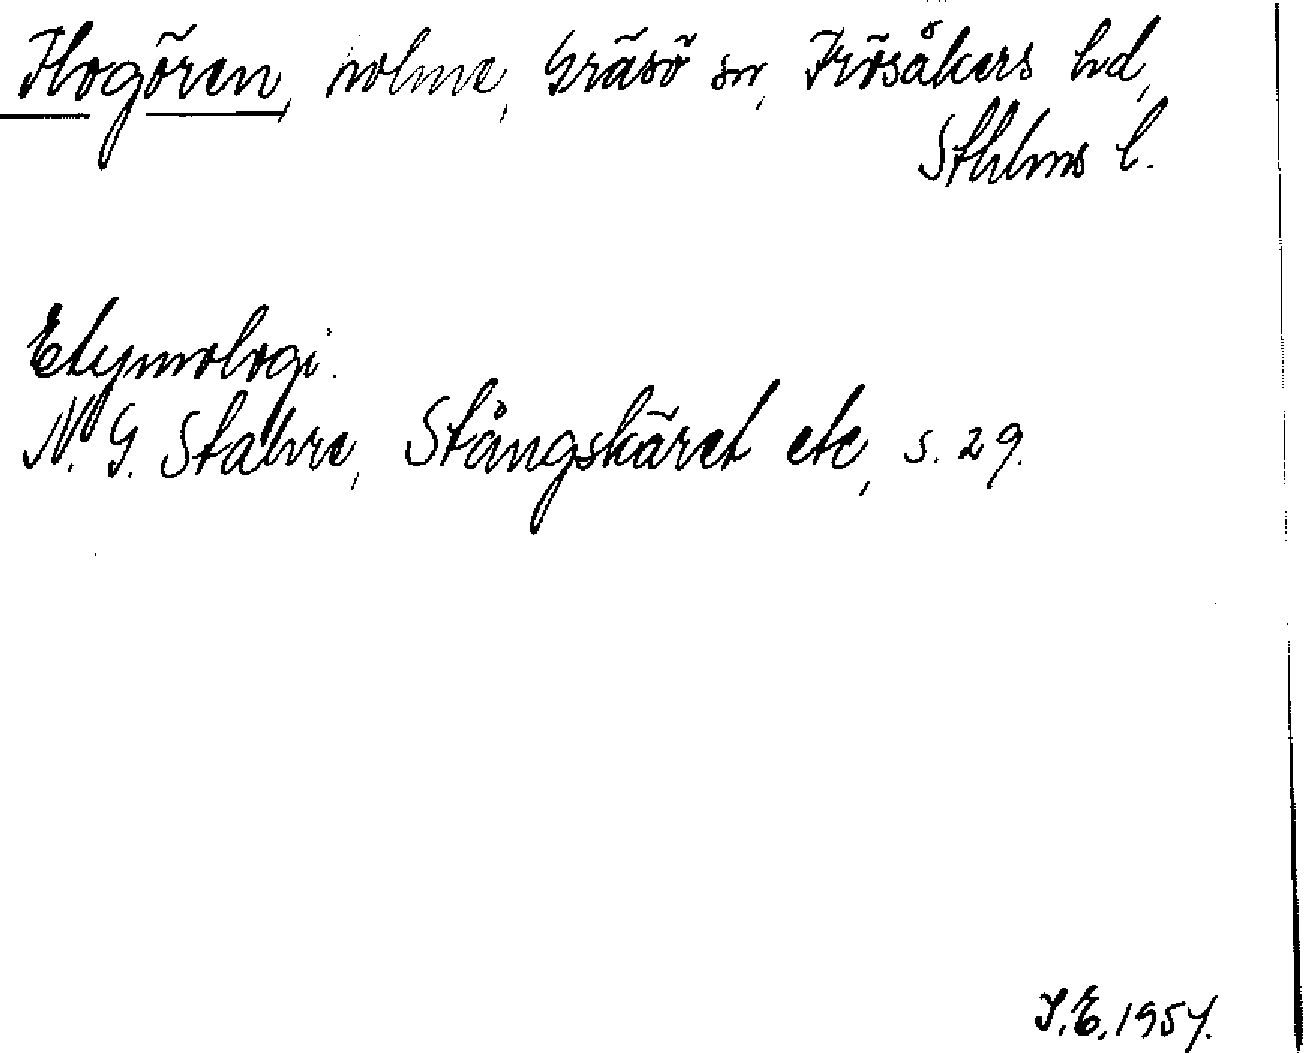 Flogören, holme, Gräsö sn, Frösåkers hd,
Sthlms l.
Etymologi.
N. G. Stahre, Stångskäret etc, s. 29.
I.E. 1957.